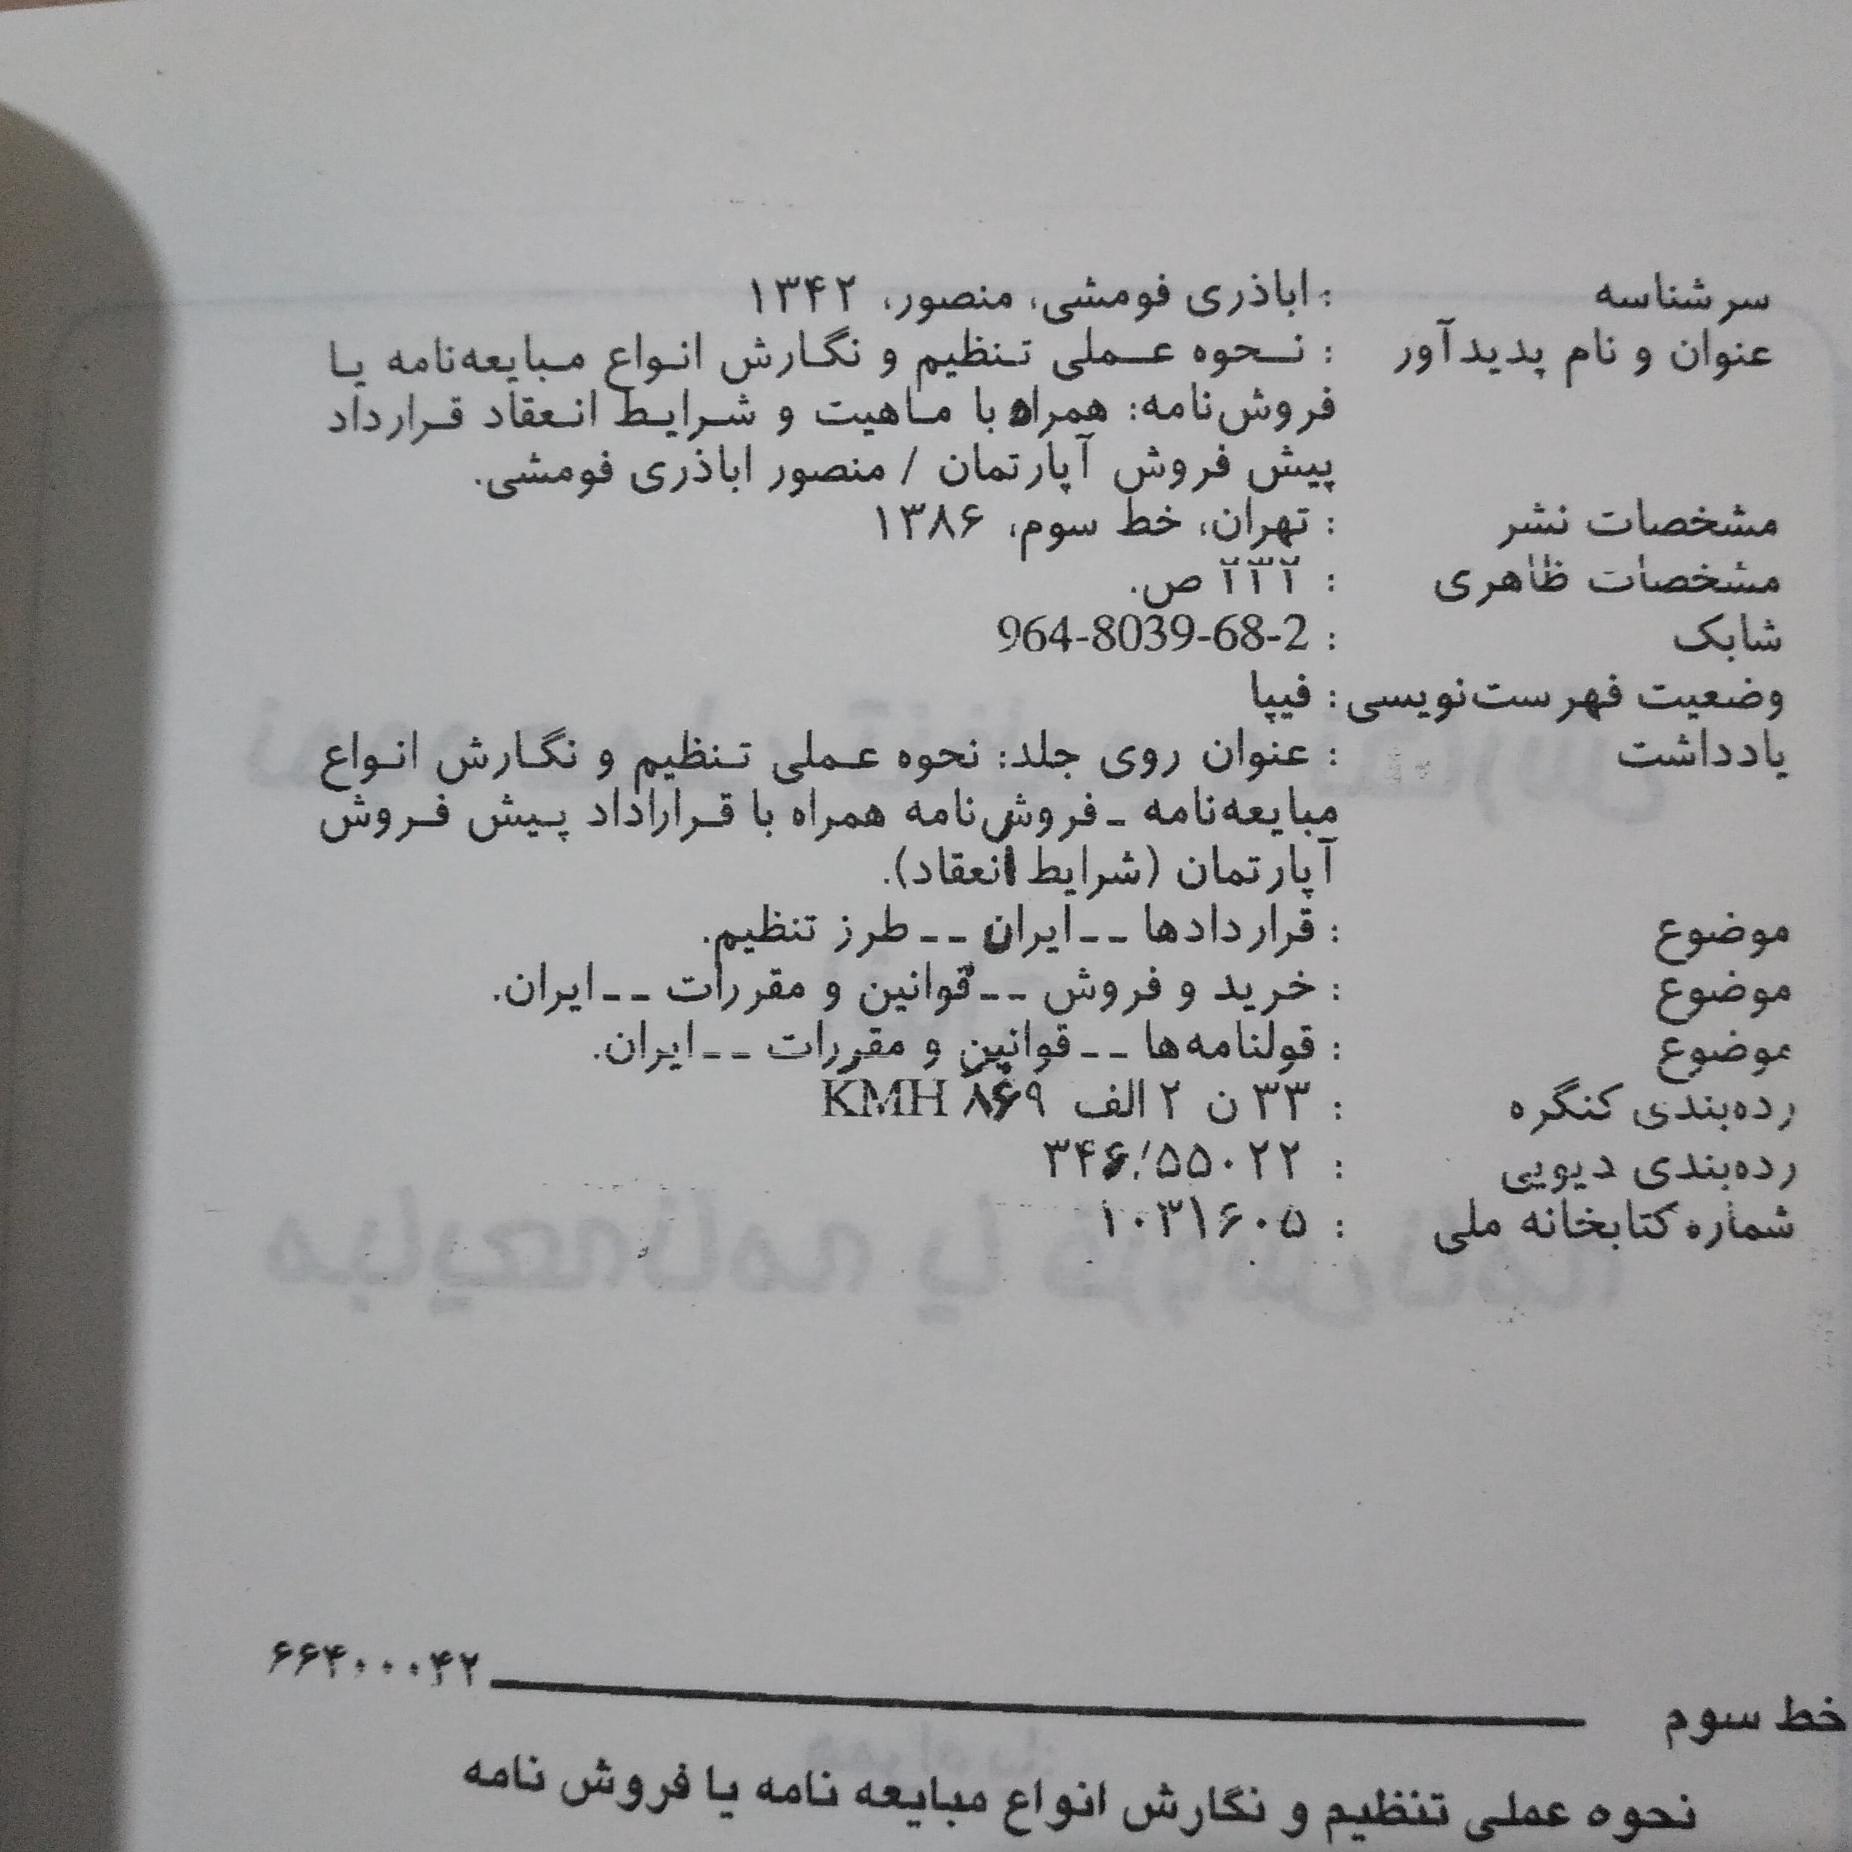 سرشناسه : اباذری فومشی، منصور، ۱۳۴۲
عنوان و نام پدیدآور : نحوه عملی تنظیم و نگارش انواع مبایعه‌نامه یا
فروش‌نامه: همراه با ماهیت و شرایط انعقاد قرارداد
پیش فروش آپارتمان / منصور اباذری فومشی.
مشخصات نشر : تهران، خط سوم، ۱۳۸۶
مشخصات ظاهری : ۲۳۲ ص.
شابک : 964-8039-68-2
وضعیت فهرست‌نویسی : فیپا
یادداشت : عنوان روی جلد: نحوه عملی تنظیم و نگارش انواع
مبایعه‌نامه ـ فروش‌نامه همراه با قراراداد پیش فروش
آپارتمان (شرایط انعقاد).
موضوع : قراردادها -- ایران -- طرز تنظیم.
موضوع : خرید و فروش -- قوانین و مقررات -- ایران.
موضوع : قولنامه‌ها -- قوانین و مقررات -- ایران.
رده‌بندی کنگره : ۳۳ ن ۲ الف ۸۶۹ KMH
رده‌بندی دیویی : ۳۴۶/۵۵۰۲۲
شماره کتابخانه ملی : ۱۰۳۱۶۰۵
خط سوم ۶۶۴۰۰۰۴۲
نحوه عملی تنظیم و نگارش انواع مبایعه نامه یا فروش نامه